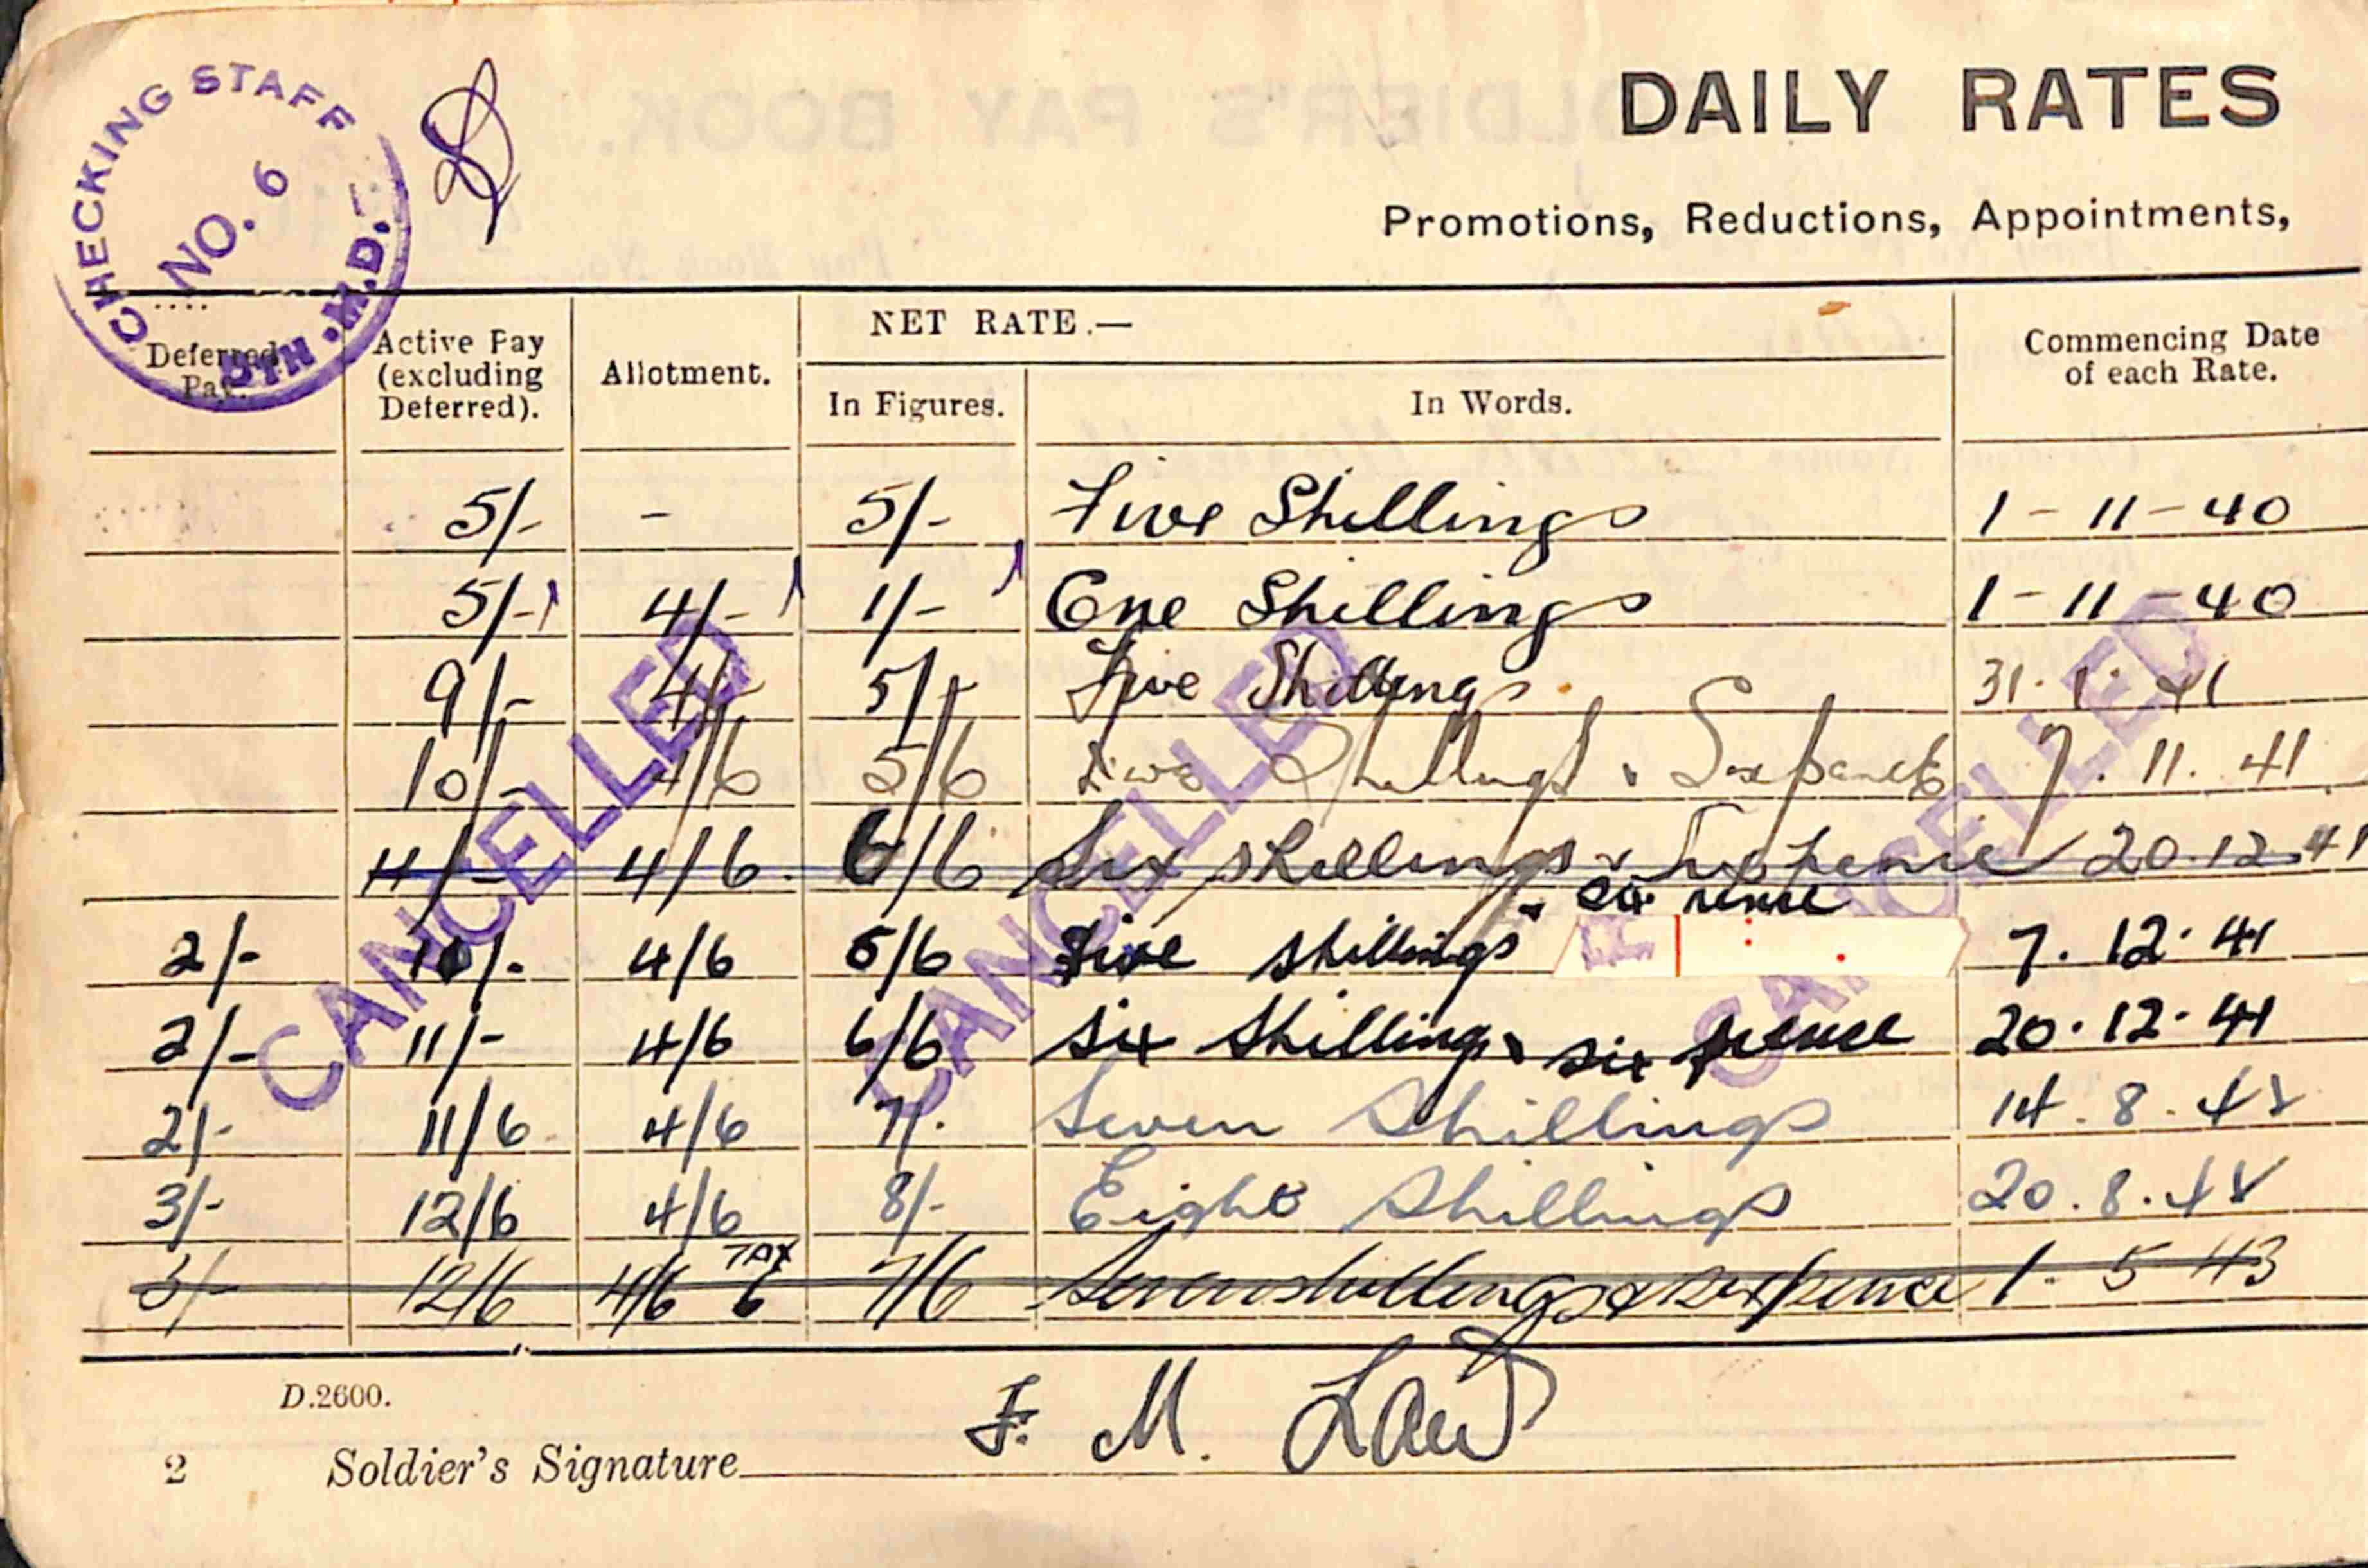 CHECKING STAFF
NO. 6
5TH. M.D.
DAILY RATES
Promotions, Reductions, Appointments,
Deferred Pay. Active Pay (excluding Deferred). Allotment. NET RATE.— In Figures. In Words. Commencing Date of each Rate.
5/- - 5/- Five Shillings 1-11-40
5/- 4/- 1/- One Shillings 1-11-40
9/- 4/- 5/- Five Shillings 31.1.41
10/- 4/6 5/6 Five Shillings & Sixpence 7.11.41
11/- 4/6 6/6 Six shillings & Sixpence 20.12.41
& six pence
2/- 10/- 4/6 5/6 Five shillings 7.12.41
2/- 11/- 4/6 6/6 Six Shillings & six pence 20.12.41
2/- 11/6 4/6 7/- Seven Shillings 14.8.42
3/- 12/6 4/6 8/- Eight Shillings 20.8.42
3/- 12/6 4/6 TAX 6 7/6 Seven shillings & sixpence 1.5 43
CANCELLED
CANCELLED
CANCELLED
D.2600.
2 Soldier's Signature F. M. Law